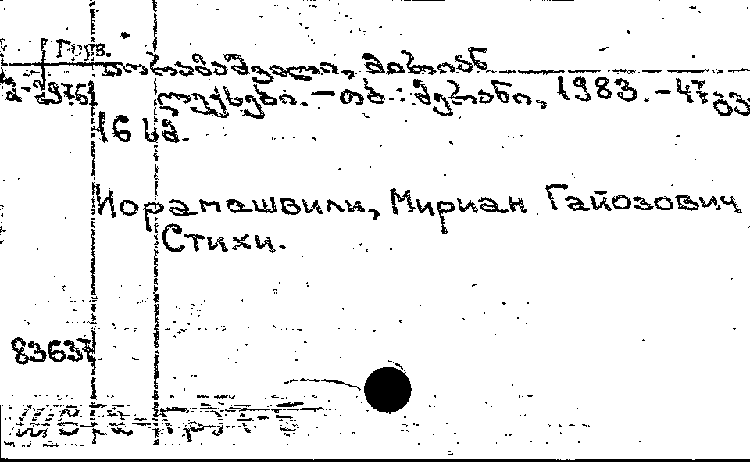 Груз.
იორამაშვილი, მირიან
2-3976
ლექსები. – თბ. : მერანი, 1983. – 47გვ
16 სმ.
Иорамашвили, Мириан Гайозович
Стихи.
83637